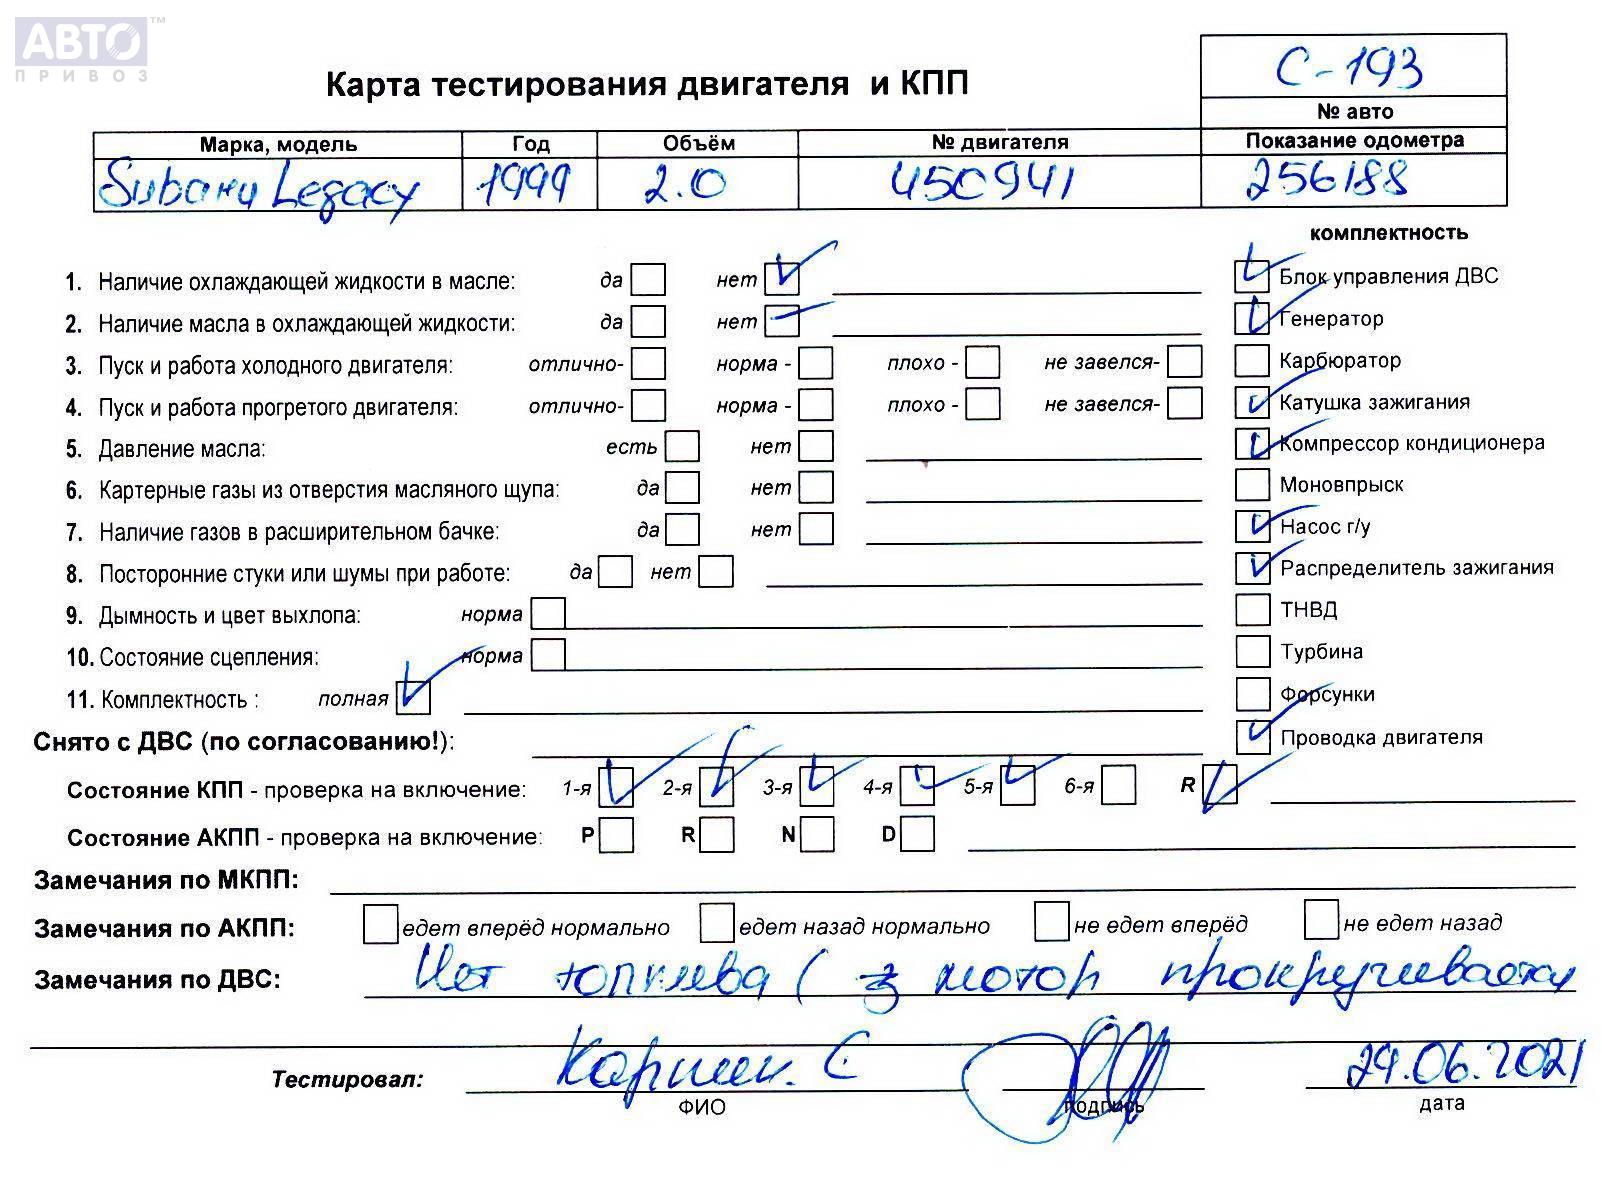 АВТО™
ПРИВОЗ
С-193
Карта тестирования двигателя и КПП
№ авто
Марка, модель Год Объём № двигателя Показание одометра
Subaru Legacy 1999 2.0 450941 256188
комплектность
1. Наличие охлаждающей жидкости в масле: да нет Блок управления ДВС
2. Наличие масла в охлаждающей жидкости: да нет Генератор
3. Пуск и работа холодного двигателя: отлично- норма - плохо - не завелся- Карбюратор
4. Пуск и работа прогретого двигателя: отлично- норма - плохо - не завелся- Катушка зажигания
5. Давление масла: есть нет Компрессор кондиционера
6. Картерные газы из отверстия масляного щупа: да нет Моновпрыск
7. Наличие газов в расширительном бачке: да нет Насос г/у
8. Посторонние стуки или шумы при работе: да нет Распределитель зажигания
9. Дымность и цвет выхлопа: норма ТНВД
10. Состояние сцепления: норма Турбина
11. Комплектность : полная Форсунки
Снято с ДВС (по согласованию!): Проводка двигателя
Состояние КПП - проверка на включение: 1-я 2-я 3-я 4-я 5-я 6-я R
Состояние АКПП - проверка на включение: P R N D
Замечания по МКПП:
Замечания по АКПП: едет вперёд нормально едет назад нормально не едет вперёд не едет назад
Замечания по ДВС: Нет топлива ( мотор
Тестировал: С 29.06.2021
ФИО подпись дата